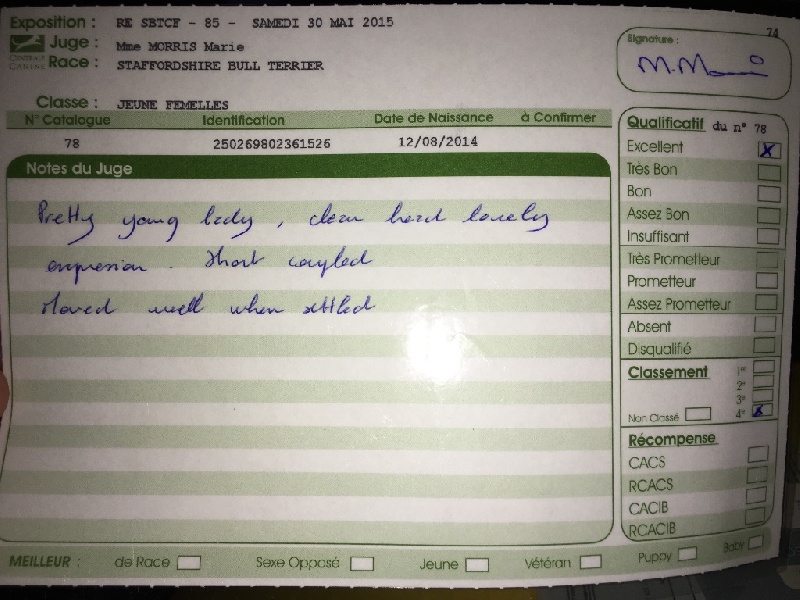 Exposition : RE SBTCF - 85 - SAMEDI 30 MAI 2015
Juge : Mme MORRIS Marie
CENTRALE CANINE
Race : STAFFORDSHIRE BULL TERRIER
Classe : JEUNE FEMELLES
74
Signature :
M.M
N° Catalogue Identification Date de Naissance à Confirmer
78 250269802361526 12/08/2014
Notes du Juge
Pretty young lady, clean head lovely
expression. Short coupled
Moved well when settled
Qualificatif du n° 78
Excellent X
Très Bon
Bon
Assez Bon
Insuffisant
Très Prometteur
Prometteur
Assez Prometteur
Absent
Disqualifié
Classement 1er
2e
3e
Non Classé 4e X
Récompense
CACS
RCACS
CACIB
RCACIB
MEILLEUR : de Race Sexe Opposé Jeune Vétéran Puppy Baby